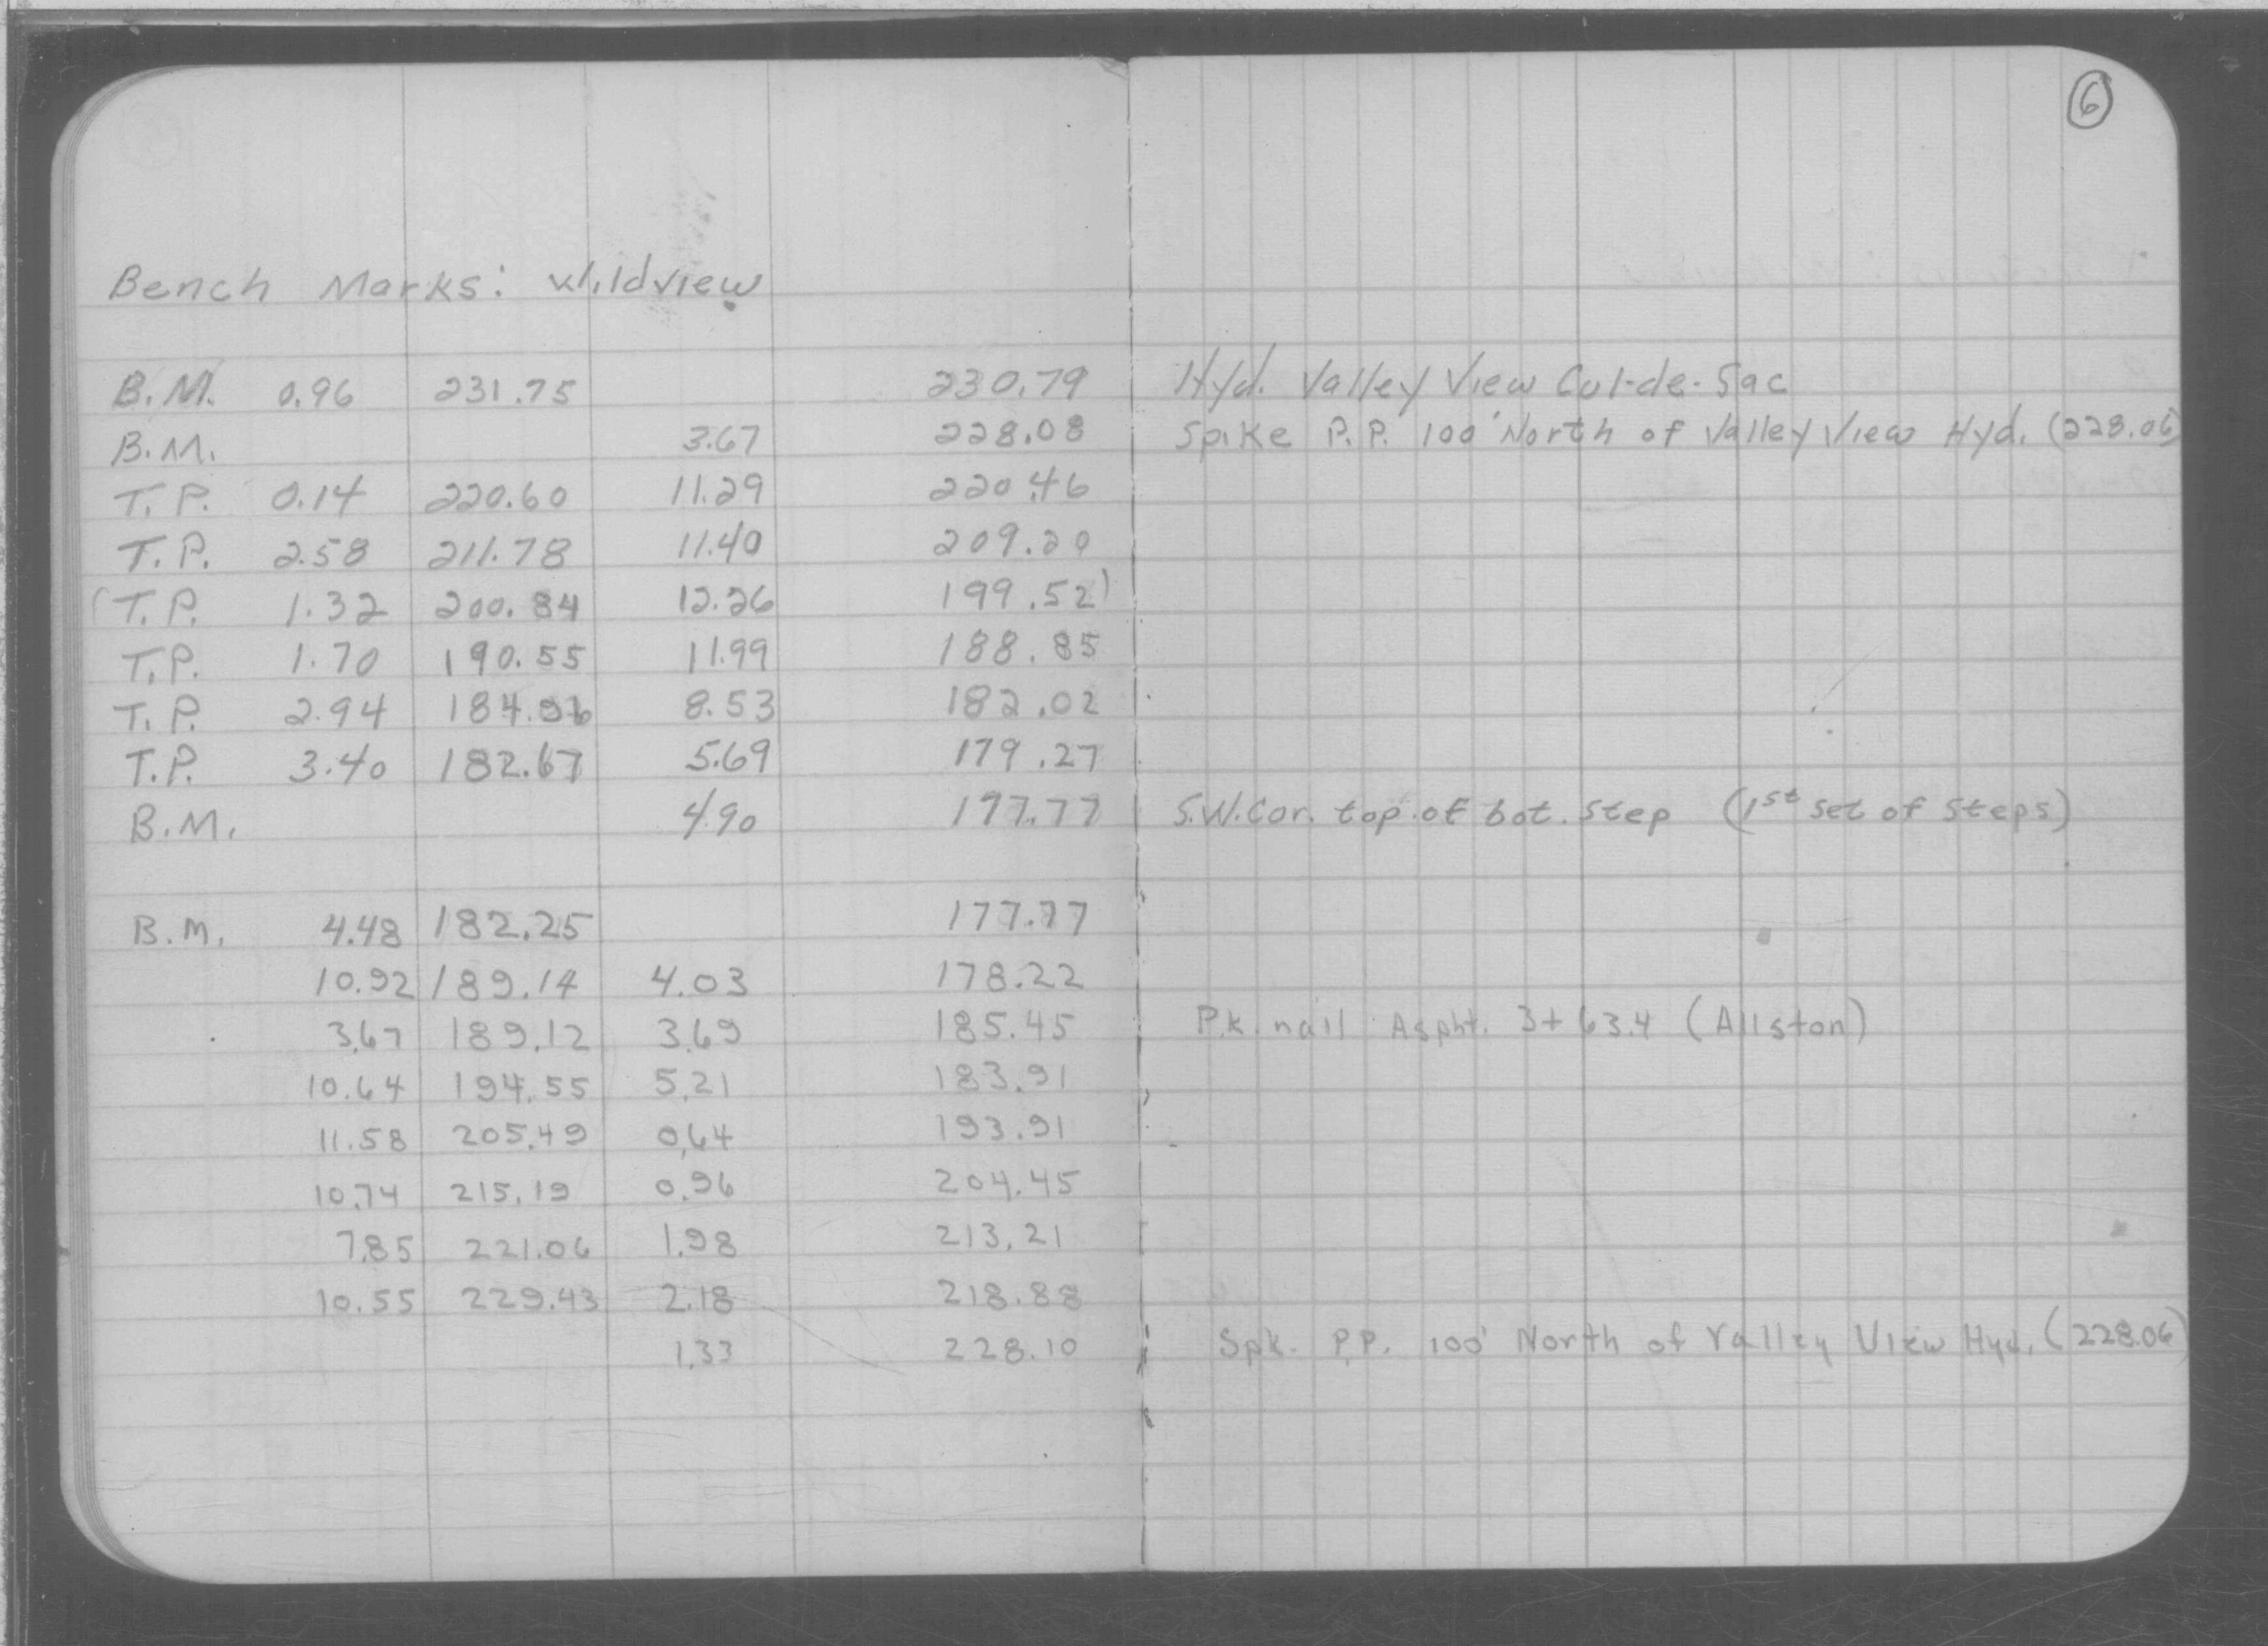 6
Bench Marks: Wildview
B.M. 0.96 231.75 230.79 Hyd. Valley View Cul-de-Sac
B.M. 3.67 228.08 Spike P.P. 100' North of Valley View Hyd. (228.06)
T.P. 0.14 220.60 11.29 220.46
T.P. 2.58 211.78 11.40 209.20
(T.P. 1.32 200.84 12.26 199.52)
T.P. 1.70 190.55 11.99 188.85
T.P. 2.94 184.96 8.53 182.02
T.P. 3.40 182.67 5.69 179.27
B.M. 4.90 177.77 S.W. Cor. top of bot. step (1st set of steps)
B.M. 4.48 182.25 177.77
10.92 189.14 4.03 178.22
3.67 189.12 3.69 185.45 P.K. nail Aspht. 3+63.4 (Allston)
10.64 194.55 5.21 183.91
11.58 205.49 0.64 193.91
10.74 215.19 0.96 204.45
7.85 221.06 1.98 213.21
10.55 229.43 2.18 218.88
1.33 228.10 Spk. P.P. 100' North of Valley View Hyd. (228.06)